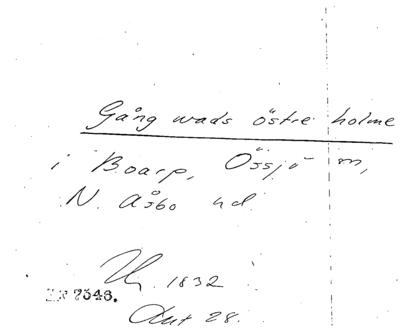 Gång wads östre holme
i Boarp, Össjö sn,
N. Åsbo hd
1832
7348.
Akt 28.